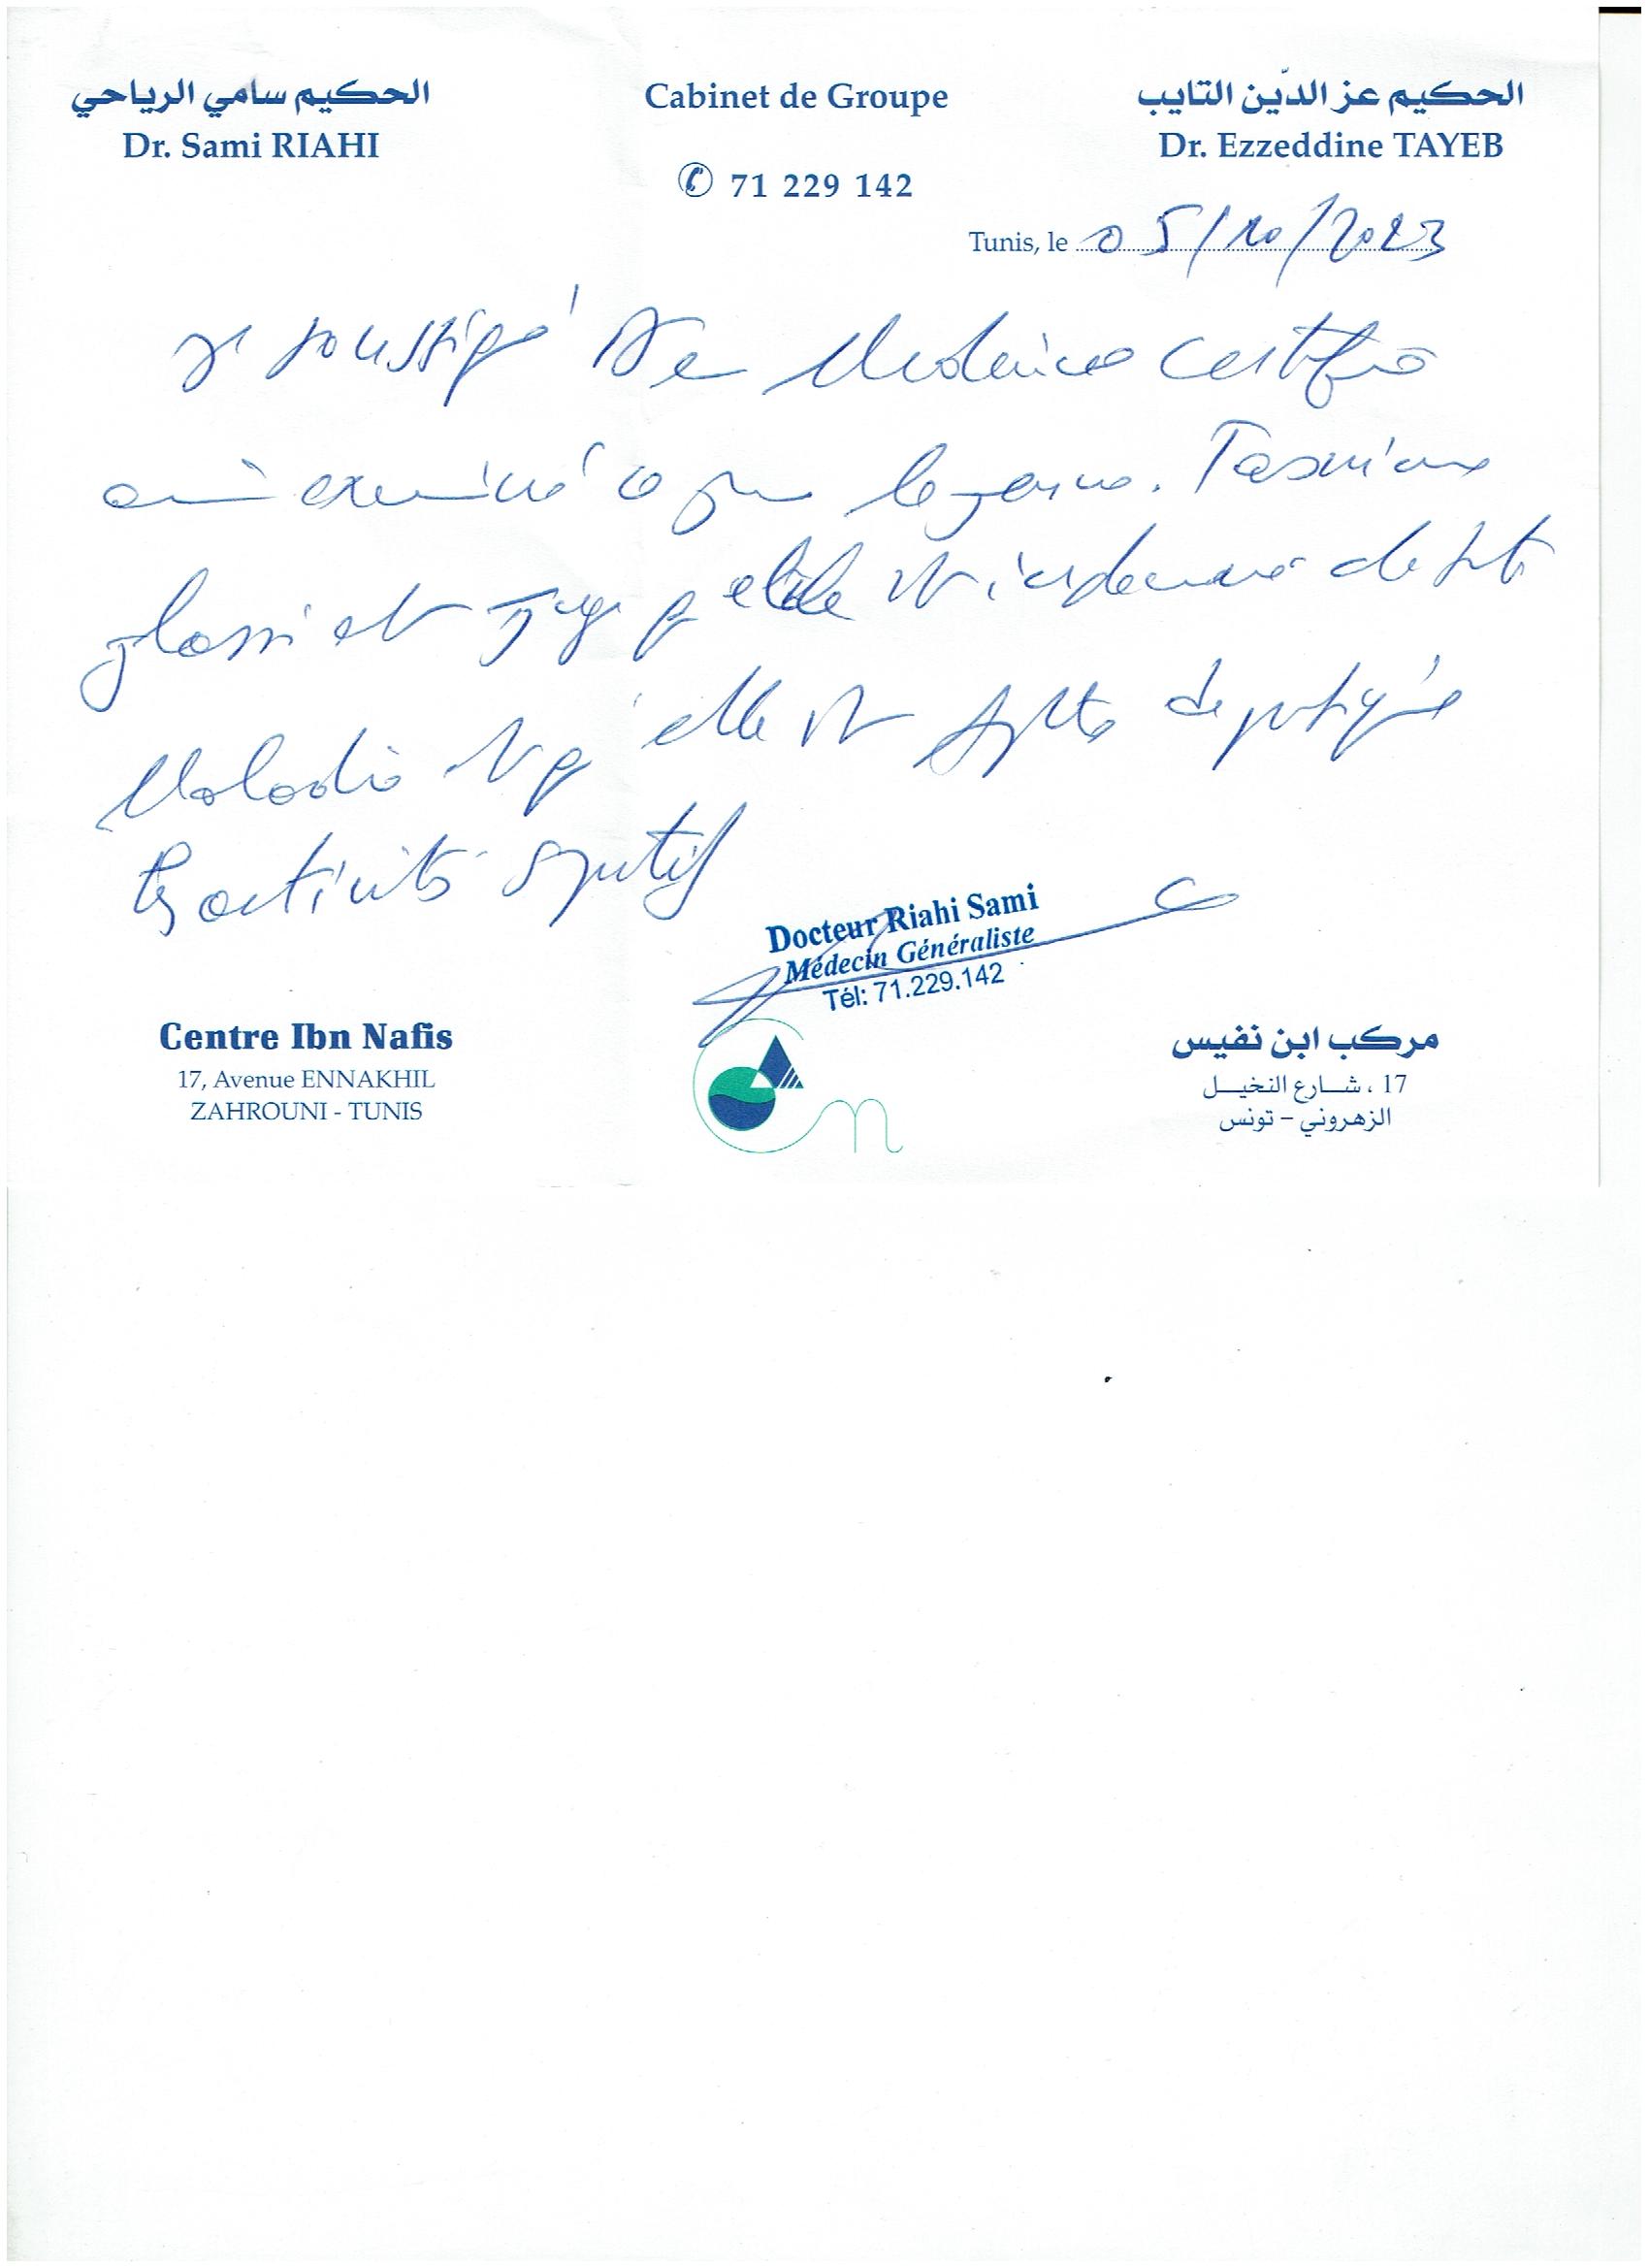 الحكيم سامي الرياحي
Dr. Sami RIAHI
Cabinet de Groupe
✆ 71 229 142
الحكيم عز الدّين التايب
Dr. Ezzeddine TAYEB
Tunis, le 05/10/2023
Je soussigné Dr en Medecine certifie
examiné ce jour la jeune. Tasnime
et juge qu'elle est indemne de toute
Maladie et qu'elle est apte de pratiquée
les activités sportif
Docteur Riahi Sami
Médecin Généraliste
Tél: 71.229.142
Centre Ibn Nafis
17, Avenue ENNAKHIL
ZAHROUNI - TUNIS
مركب ابن نفيس
17 ، شـــارع النخيـــل
الزهروني – تونس